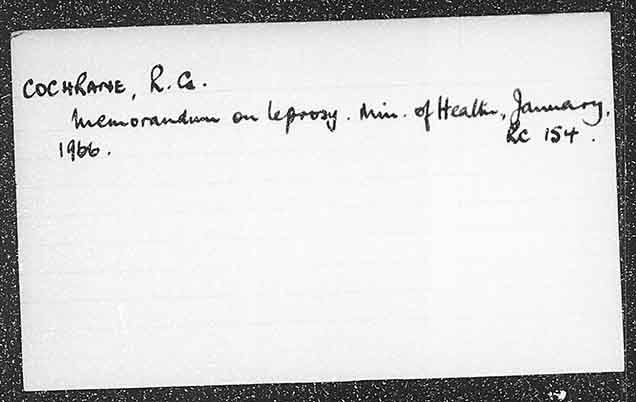 COCHRANE, R. G.
Memorandum on leprosy. Min. of Health, January,
1966.
RC 154.